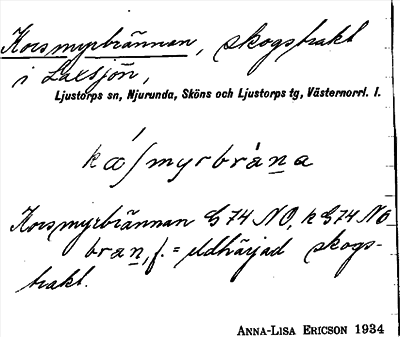 Korsmyrbrännan, skogstrakt
i Laxsjön,
Ljustorps sn, Njurunda, Sköns och Ljustorps tg, Västernorrl. l.
kaʃmyrbrana
Korsmyrbrännan G 74 NO, k G 74 NO
bran, f. = eldhärjad skogs-
trakt.
ANNA-LISA ERICSON 1934